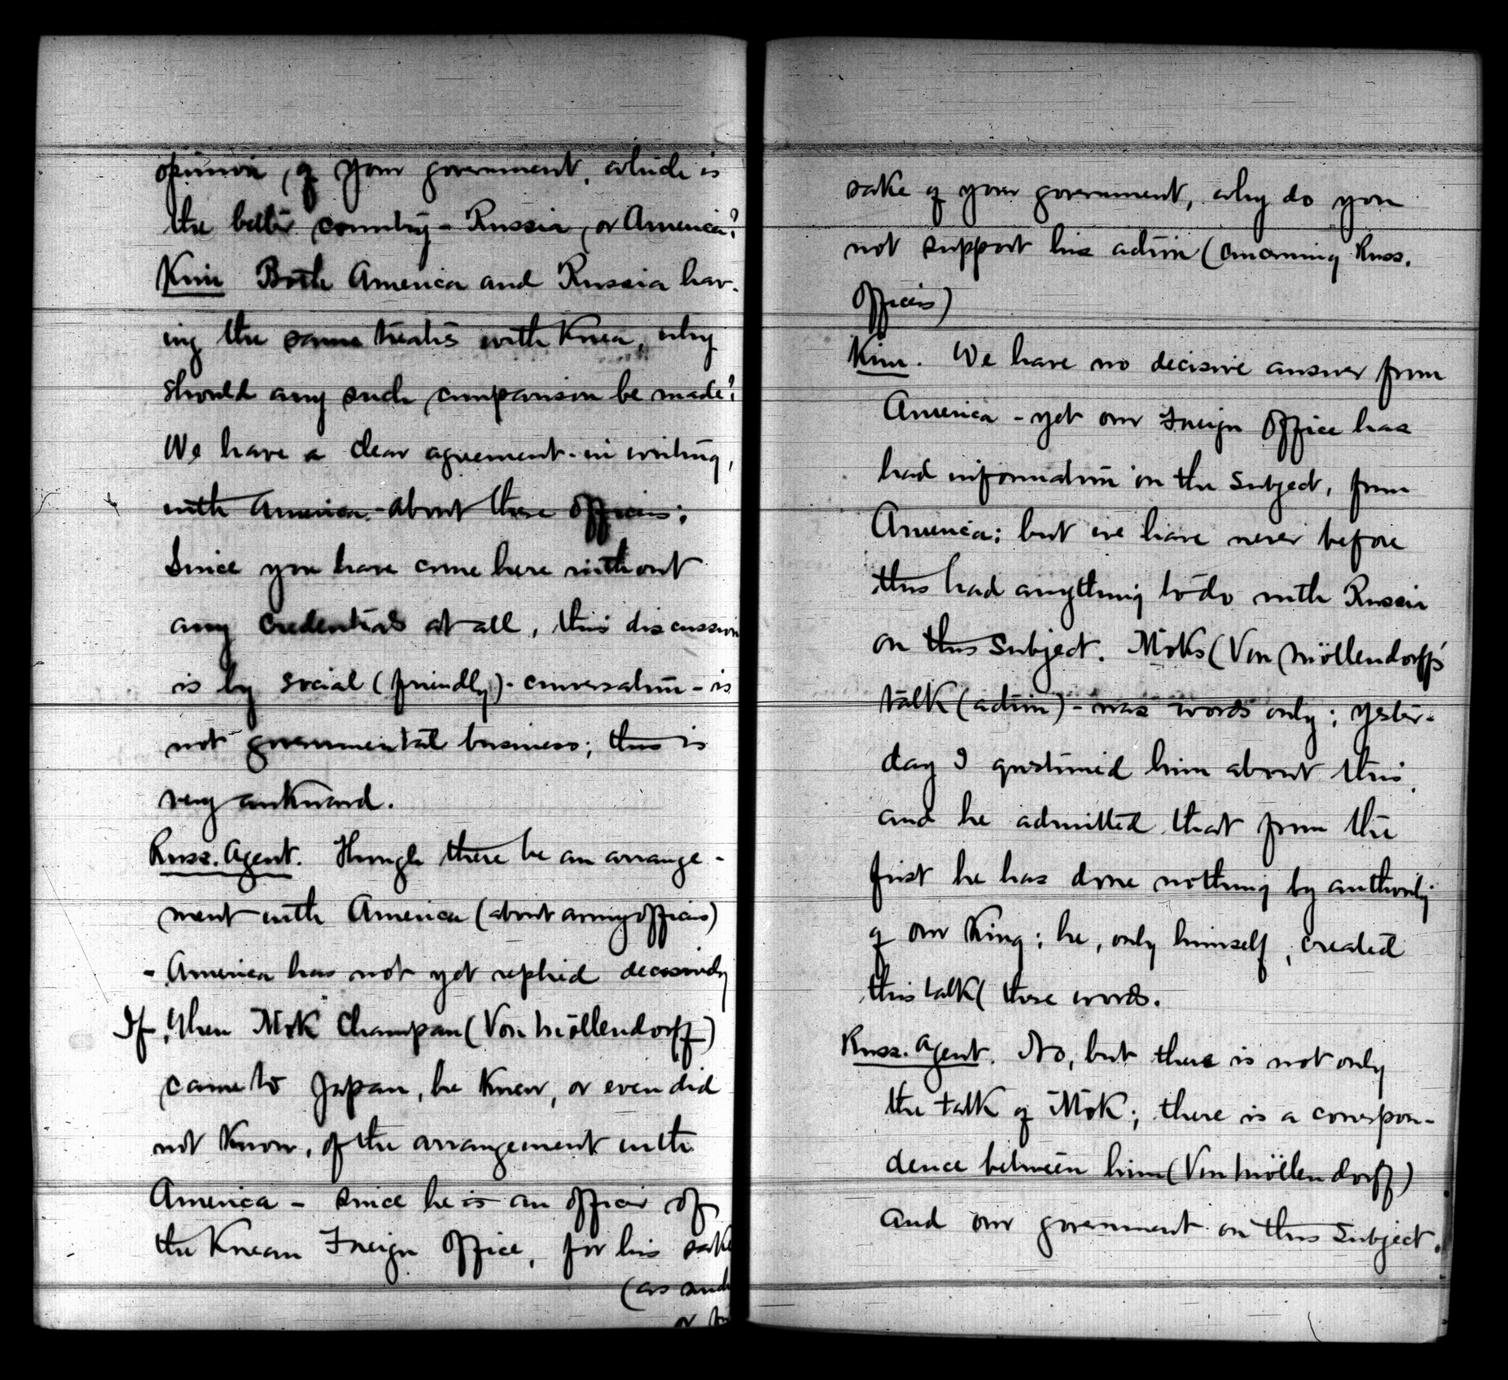 opinion, of your government, which is
the better country - Russia, or America?
Kim Both America and Russia hav-
ing the same treaties with Korea, why
should any such comparison be made?
We have a clear agreement - in writing,
with America - about these officers;
Since you have come here without
any credentials at all, this discussion
is by social (friendly) - conversation - is
not governmental business; this is
very awkward.
Russ. Agent. Though there be an arrange-
ment with America (about army officers)
- America has not yet replied decisively
If, When Mok Champan (Von Möllendorff)
came to Japan, he knew, or even did
not know, of the arrangement with
America - since he is an officer of
the Korean Foreign Office, for his sake
(as such
or
sake of your government, why do you
not support his action (concerning Russ.
officers)
Kim. We have no decisive answer from
America - yet our Foreign Office has
had information on the subject, from
America; but we have never before
this had anything to do with Russia
on this subject. Moks (Von Möllendorff's
talk (action) - was words only; yester-
day I questioned him about this,
and he admitted that from the
first he has done nothing by authority
of our King; he, only himself, created
this talk (these words.
Russ. Agent. No, but there is not only
the talk of Mok; there is a correspon-
dence between him (Von Möllendorff)
and our government on this subject.